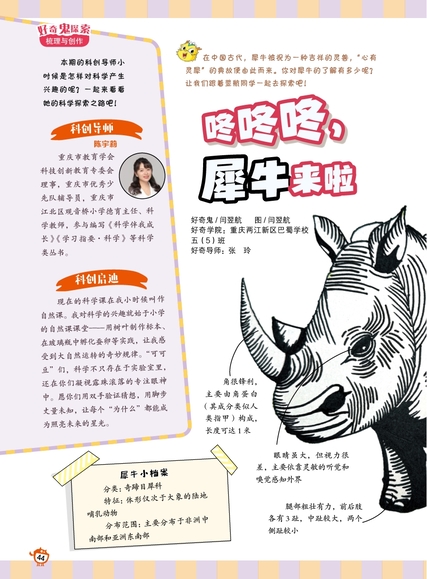 好奇鬼探索
梳理与创作
本期的科创导师小
时候是怎样对科学产生
兴趣的呢？一起来看看
她的科学探索之路吧！
科创导师
陈宇韵
重庆市教育学会
科技创新教育专委会
理事，重庆市优秀少
先队辅导员，重庆市
江北区观音桥小学德育主任、科
学教师，参与编写《科学伴我成
长》《学习指要·科学》等科学
类丛书。
科创启迪
现在的科学课在我小时候叫作
自然课。我对科学的兴趣就始于小学
的自然课课堂——用树叶制作标本、
在玻璃瓶中孵化蚕卵等实践，让我感
受到大自然运转的奇妙规律。“可可
豆”们，科学不只存在于实验室里，
还在你们凝视露珠滚落的专注眼神
中。愿你们用双手验证猜想，用脚步
丈量未知，让每个“为什么”都能成
为照亮未来的星光。
在中国古代，犀牛被视为一种吉祥的灵兽，“心有
灵犀”的典故便由此而来。你对犀牛的了解有多少呢？
让我们跟着翌航同学一起去探索吧！
咚咚咚，
犀牛来啦
好奇鬼/闫翌航 图/闫翌航
好奇学院：重庆两江新区巴蜀学校
五（5）班
好奇导师：张 玲
角很锋利，
主要由角蛋白
（其成分类似人
类指甲）构成，
长度可达1米
眼睛虽大，但视力很
差，主要依靠灵敏的听觉和
嗅觉感知外界
腿部粗壮有力，前后肢
各有3趾，中趾较大，两个
侧趾较小
犀牛小档案
分类：奇蹄目犀科
特征：体形仅次于大象的陆地
哺乳动物
分布范围：主要分布于非洲中
南部和亚洲东南部
44